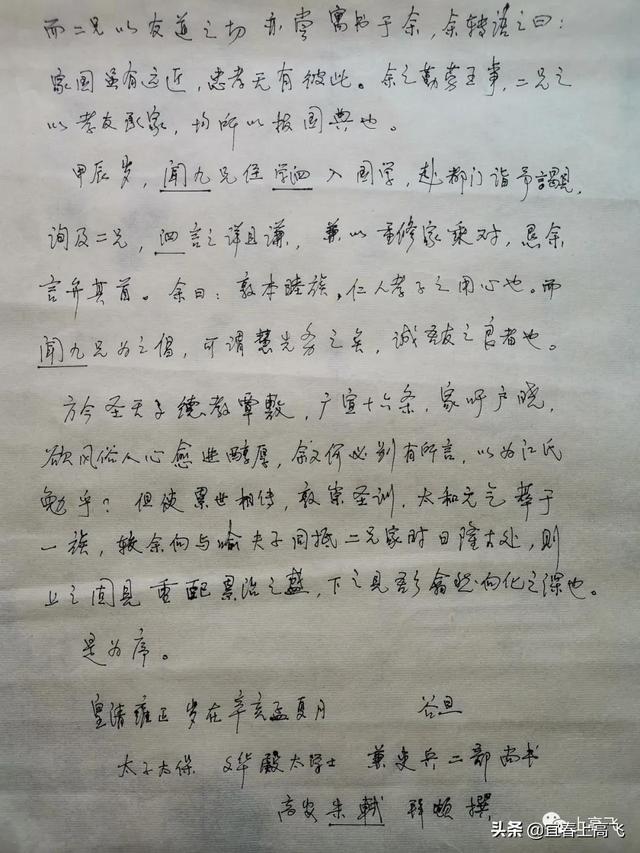 而二兄以友道之切亦尝寓书于余,余转语之曰:
家国虽有远近,忠孝无有彼此。余之勤劳王事,二兄之
以孝友承家,均所以报国典也。
甲辰岁,闻九兄侄学泗入国学,赴都门诣予谒见,
询及二兄,泗言之详且谦,兼以重修家乘对,恳余
言弁其首。余曰:敦本睦族,仁人孝子之用心也。而
闻九兄为之倡,可谓慧先务之矣,诚吾友之肖者也。
方今圣天子德教覃敷,广宣十六条,家呼户晓,
欲风俗人心愈进醇厚,余又何必别有所言,以为江氏
勉乎?但使累世相传,敦崇圣训,太和元气萃于
一族,较余向与喻夫子同抵二兄家时日隆古处,则
上之固见重熙累洽之盛,下之见吾乡翕然向化之深也。
是为序。
皇清雍正岁在辛亥孟夏月 谷旦
太子太保 文华殿大学士 兼吏兵二部尚书
高安朱轼 拜顿 撰
上高飞
头条@宜春上高飞